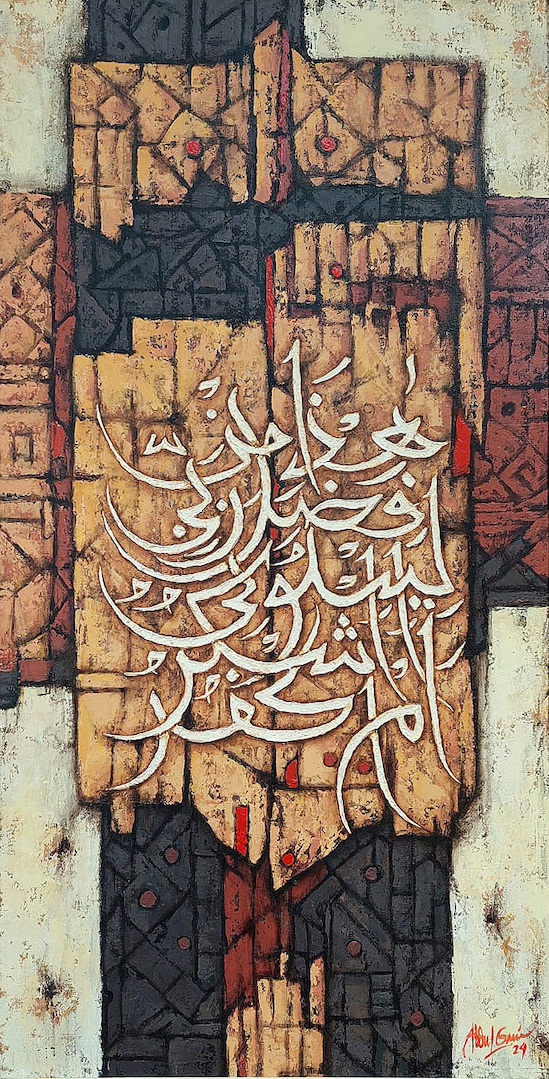 هٰذَا مِنْ
فَضْلِ رَبِّي
لِيَبْلُوَنِي
أَأَشْكُرُ
أَمْ أَكْفُرُ
24